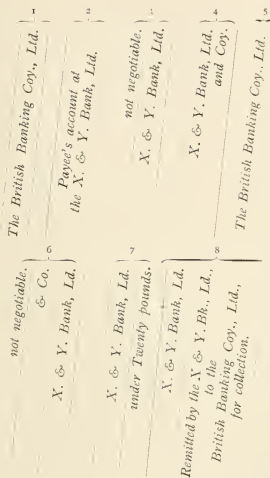 1 2 3 4 5
The British Banking Coy., Ltd.
Payee's account at
the X. & Y. Bank, Ltd.
not negotiable.
X. & Y. Bank, Ltd.
X. & Y. Bank, Ltd.
and Coy.
The British Banking Coy., Ltd.
6 7 8
not negotiable.
& Co.
X. & Y. Bank, Ld.
X. & Y. Bank, Ld.
under Twenty pounds.
X. & Y. Bank, Ld.
Remitted by the X & Y. Bk., Ld.,
to the
British Banking Coy., Ltd.,
for collection.